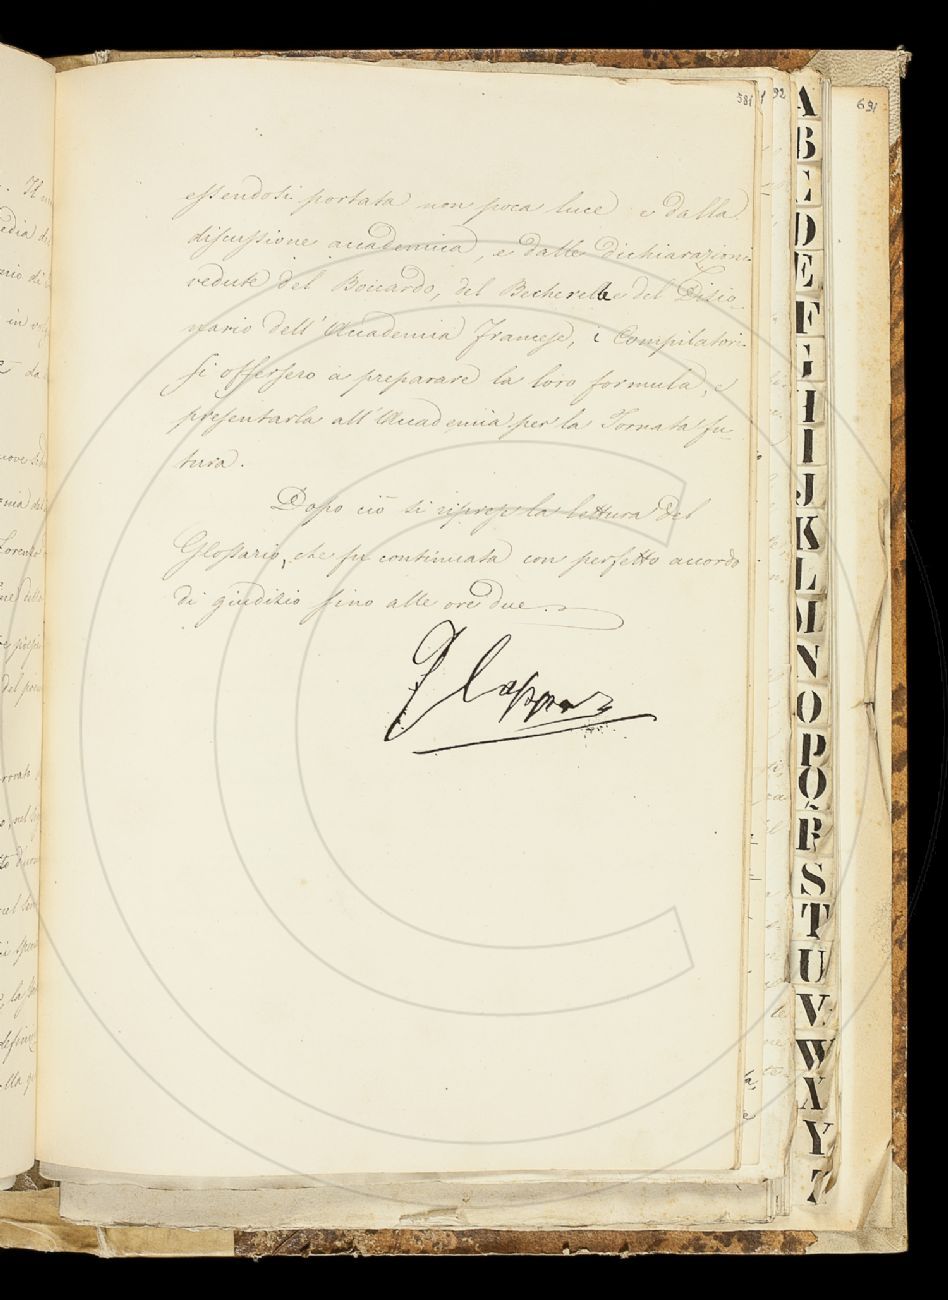 581
92
691
essendosi portata non poca luce e dalla
discussione accademica, e dalle dichiarazioni
vedute del Boccardo, del Becherelle e del Dizio-
nario dell'Accademia Francese, i Compilatori
si offersero a preparare la loro formula, e
presentarla all'Accademia per la Tornata fu-
tura.
Dopo ciò si riprese la lettura del
Glossario, che fu continuata con perfetto accordo
di giudizio fino alle ore due.
A
B
C
D
E
F
G
H
I
J
K
L
M
N
O
P
Q
R
S
T
U
V
W
X
Y
Z
C